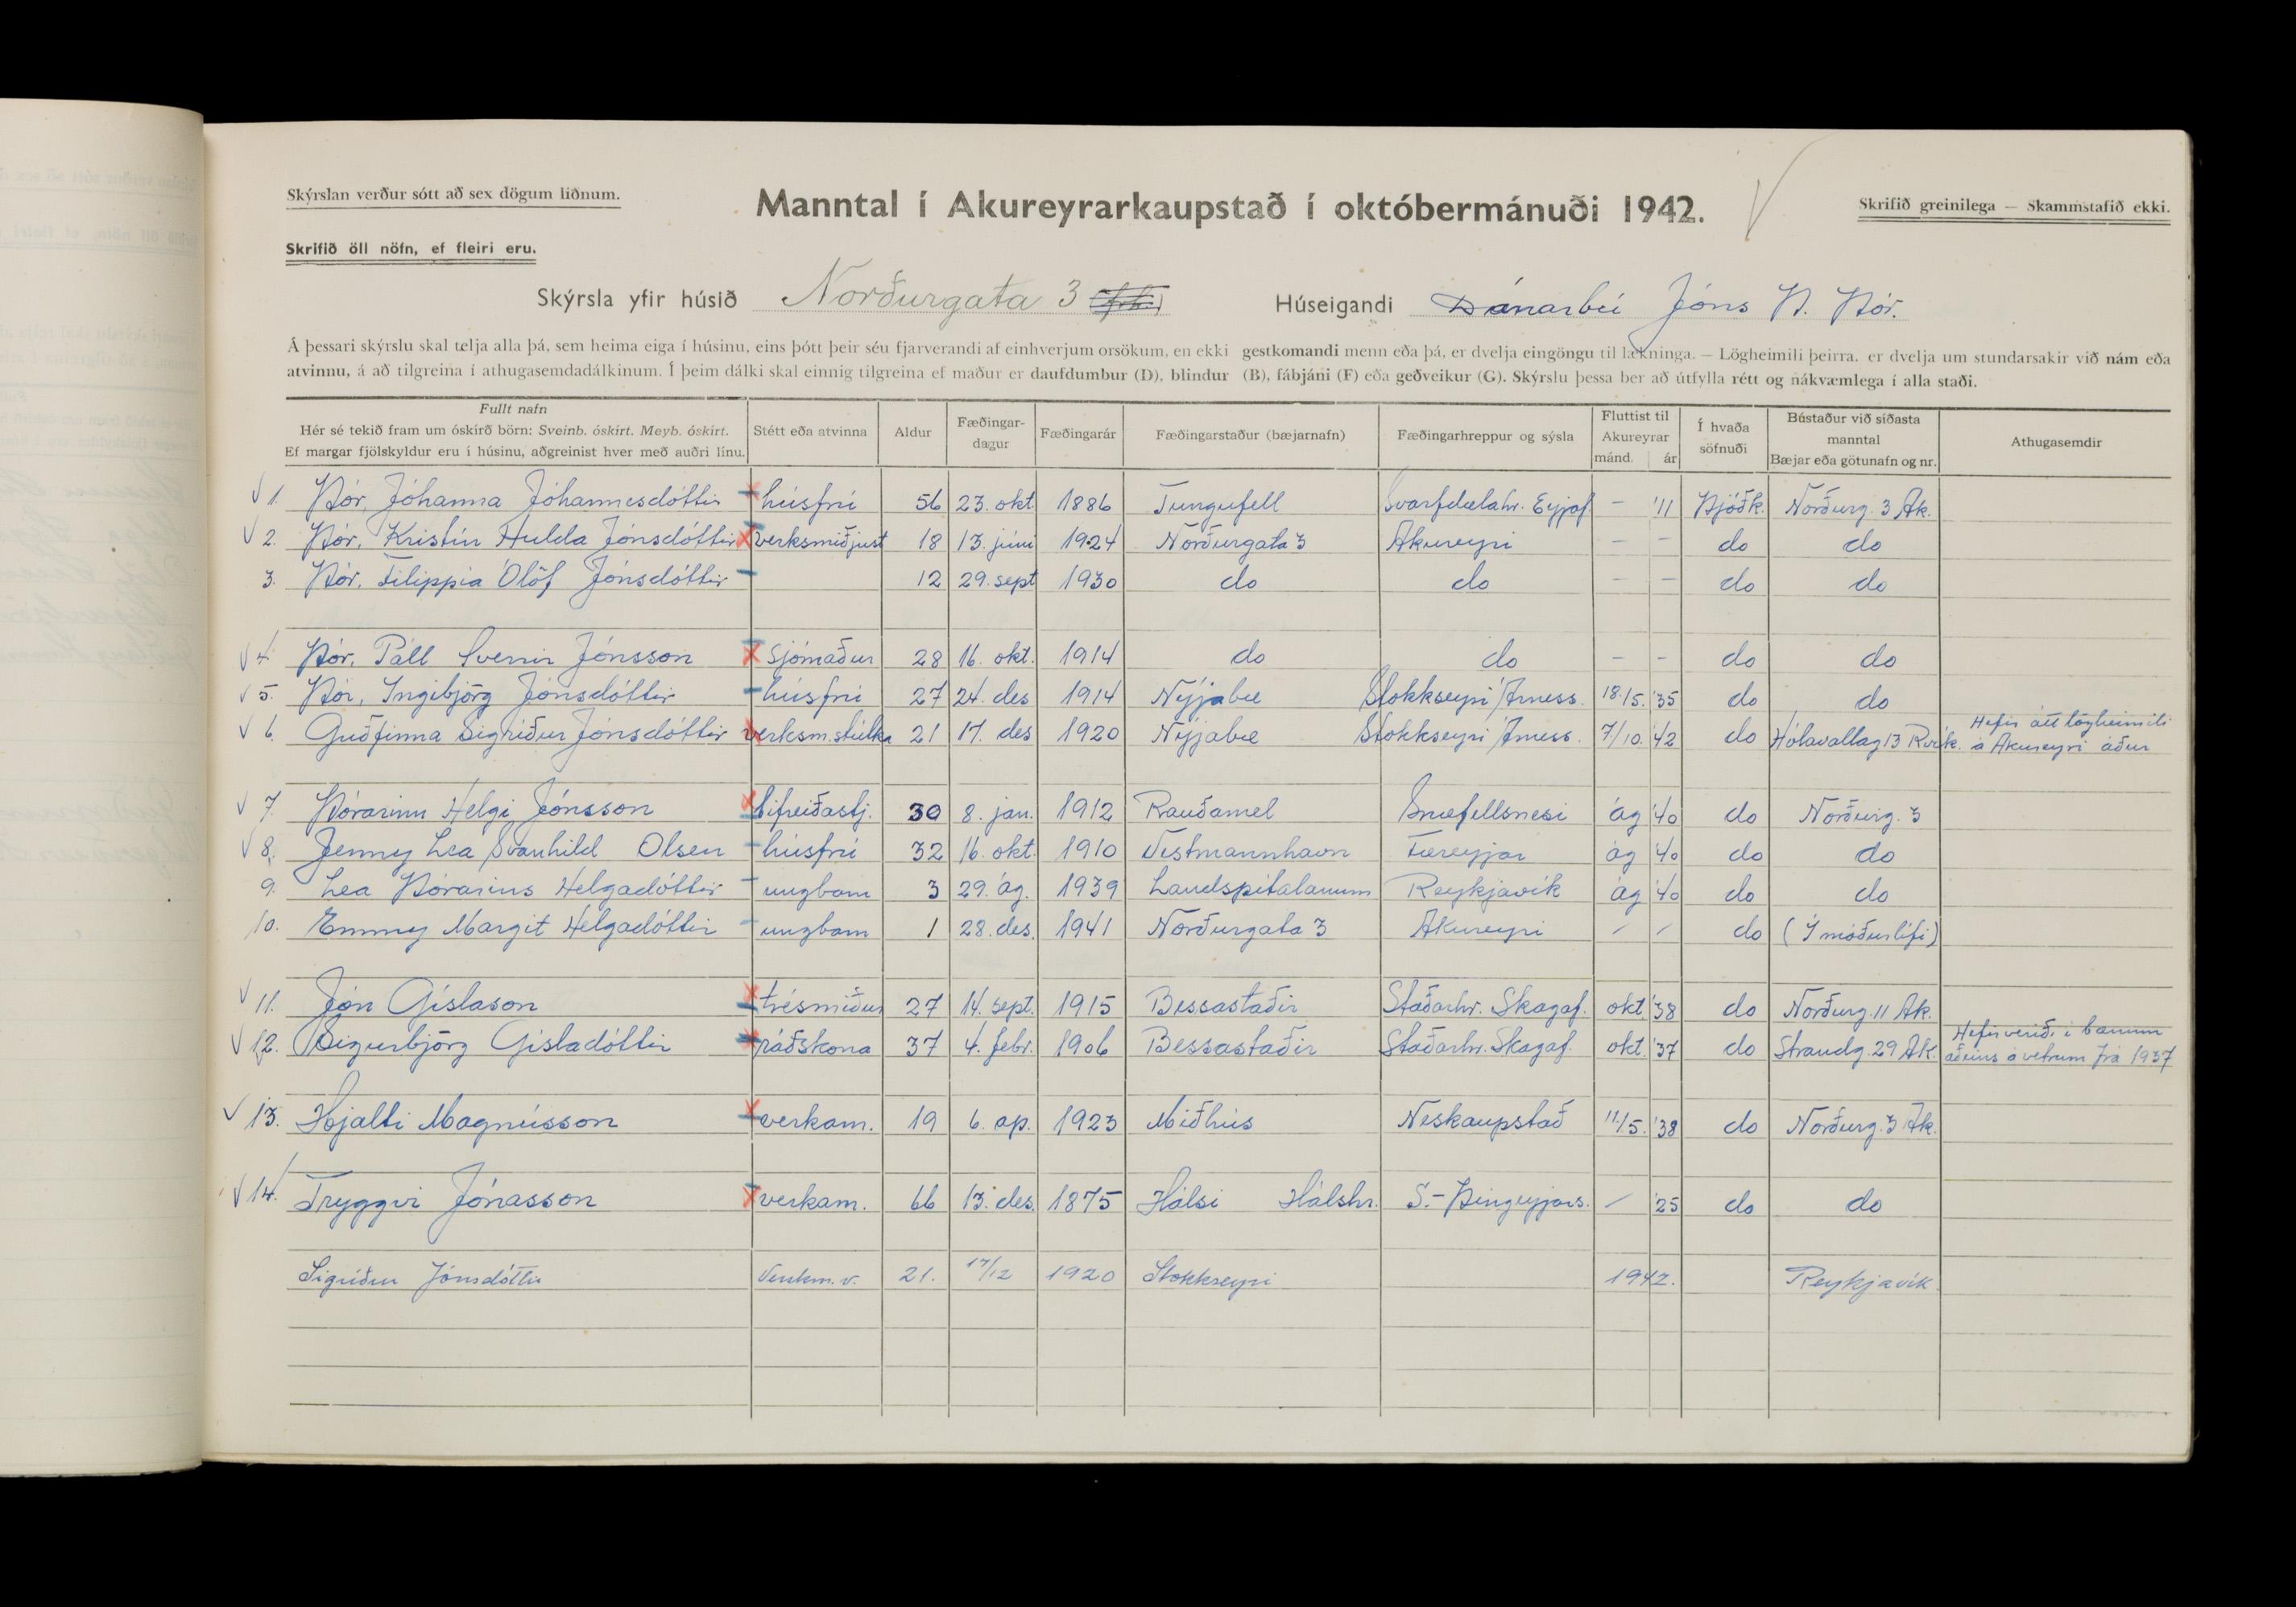 Skýrslan verður sótt að sex dögum liðnum.
Manntal í Akureyrarkaupstað í októbermánuði 1942.
Skrifið greinilega — Skammstafið ekki.
Skrifið öll nöfn, ef fleiri eru.
Skýrsla yfir húsið Norðurgata 3
Húseigandi Dánarbú Jóns Þ. Þór.
Á þessari skýrslu skal telja alla þá, sem heima eiga í húsinu, eins þótt þeir séu fjarverandi af einhverjum orsökum, en ekki gestkomandi menn eða þá, er dvelja eingöngu til lækninga. — Lögheimili þeirra, er dvelja um stundarsakir við nám eða
atvinnu, á að tilgreina í athugasemdadálkinum. Í þeim dálki skal einnig tilgreina ef maður er daufdumbur (D), blindur (B), fábjáni (F) eða geðveikur (G). Skýrslu þessa ber að útfylla rétt og nákvæmlega í alla staði.
Fullt nafn
Hér sé tekið fram um óskírð börn: Sveinb. óskírt. Meyb. óskírt.
Ef margar fjölskyldur eru í húsinu, aðgreinist hver með auðri línu.
Stétt eða atvinna
Aldur
Fæðingar-
dagur
Fæðingarár
Fæðingarstaður (bæjarnafn)
Fæðingarhreppur og sýsla
Fluttist til
Akureyrar
mánd. ár
Í hvaða
söfnuði
Bústaður við síðasta
manntal
Bæjar eða götunafn og nr.
Athugasemdir
1. Þór, Jóhanna Jóhannesdóttir húsfrú 56 23. okt 1886 Tungufell Svarfdælahr. Eyjaf. — '11 Þjóðk. Norðurg. 3 Ak.
2. Þór, Kristín Hulda Jónsdóttir verksmiðjust 18 13. júní 1924 Norðurgata 3 Akureyri — — do do
3. Þór, Filippía Ólöf Jónsdóttir 12 29. sept 1930 do do — — do do
4. Þór, Páll Sverrir Jónsson Sjómaður 28 16. okt. 1914 do do — — do do
5. Þór, Ingibjörg Jónsdóttir húsfrú 27 24. des 1914 Nýjabæ Stokkseyri Árness. 18./5. '35 do do
6. Guðfinna Sigríður Jónsdóttir verksm.stúlka 21 17. des 1920 Nýjabæ Stokkseyri Árness. 7/10. '42 do Hólavallag 13 Rvík. Hefir átt lögheimili
á Akureyri áður
7. Þórarinn Helgi Jónsson bifreiðastj. 30 8. jan. 1912 Rauðamel Snæfellsnesi ág '40 do Norðurg. 3
8. Jenny Lea Svanhild Olsen húsfrú 32 16. okt. 1910 Vestmannhavn Færeyjar ág '40 do do
9. Lea Þórarins Helgadóttir ungbarn 3 29. ág. 1939 Landspítalanum Reykjavík ág '40 do do
10. Emmy Margit Helgadóttir ungbarn 1 28. des. 1941 Norðurgata 3 Akureyri / / do (Í móðurlífi)
11. Jón Gíslason trésmiður 27 14. sept. 1915 Bessastaðir Staðarhr. Skagaf. okt. '38 do Norðurg. 11 Ak.
12. Sigurbjörg Gísladóttir ráðskona 37 4. febr. 1906 Bessastaðir Staðarhr. Skagaf. okt. '37 do Strandg. 29 Ak. Hefir verið í bænum
aðeins á vetrum frá 1937
13. Hjalti Magnússon verkam. 19 6. ap. 1923 Miðhús Neskaupstað 11./5. '38 do Norðurg. 3 Ak.
14. Tryggvi Jónasson verkam. 66 13. des. 1875 Hálsi Hálshr. S.-Þingeyjars. / '25 do do
Sigríður Jónsdóttir Verksm.v. 21. 17/12 1920 Stokkseyri 1942. Reykjavík